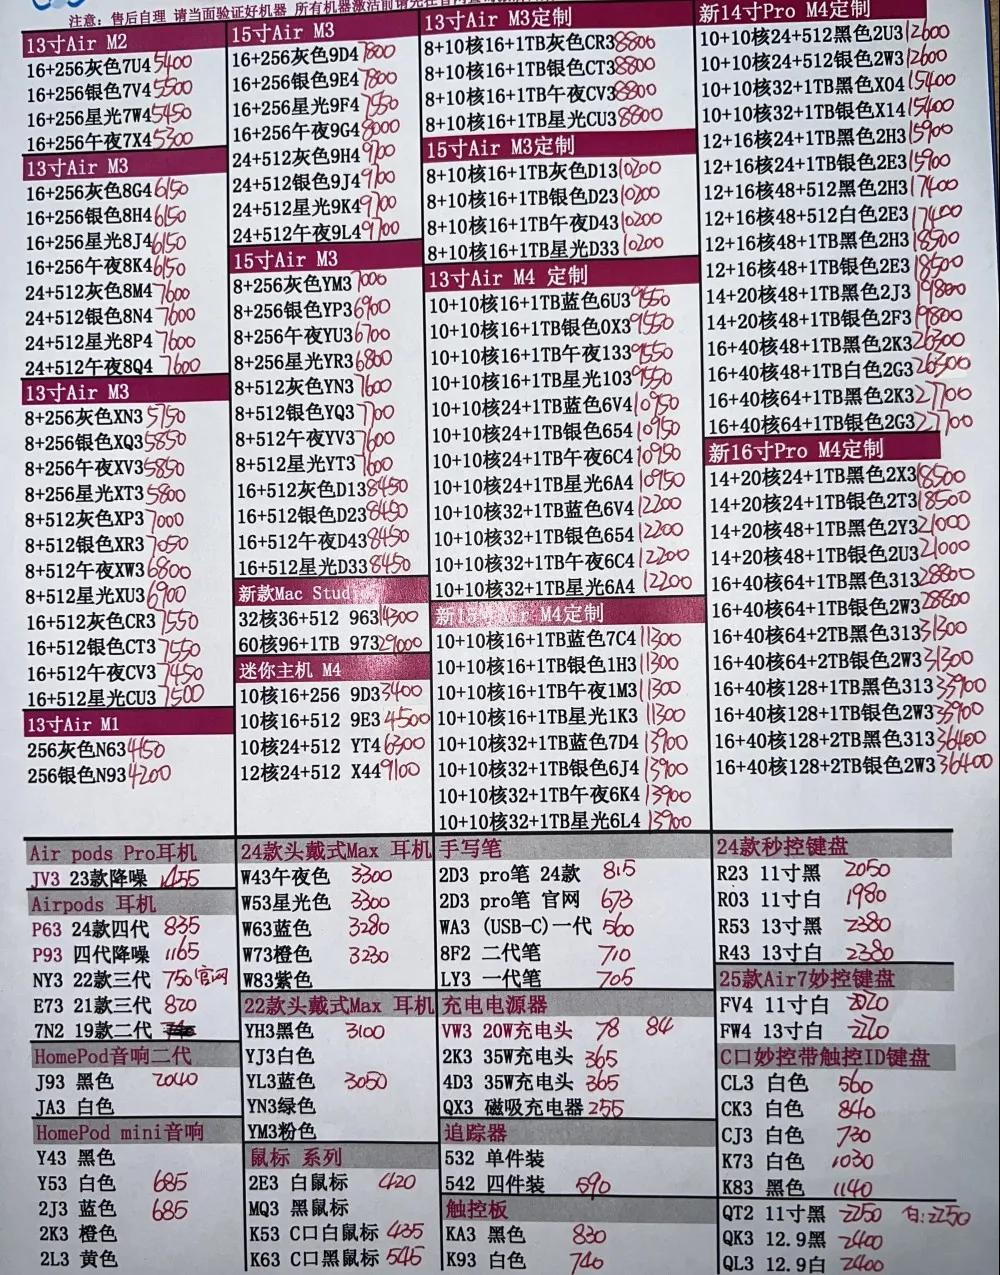 注意：售后自理 请当面验证好机器 所有机器激活前请先在官网
13寸Air M2
16+256灰色7U4 5400
16+256银色7V4 5500
16+256星光7W4 5450
16+256午夜7X4 5300
13寸Air M3
16+256灰色8G4 6150
16+256银色8H4 6150
16+256星光8J4 6150
16+256午夜8K4 6150
24+512灰色8M4 7600
24+512银色8N4 7600
24+512星光8P4 7600
24+512午夜8Q4 7600
13寸Air M3
8+256灰色XN3 5750
8+256银色XQ3 5850
8+256午夜XV3 5850
8+256星光XT3 5800
8+512灰色XP3 7000
8+512银色XR3 7050
8+512午夜XW3 6800
8+512星光XU3 6900
16+512灰色CR3 7550
16+512银色CT3 7550
16+512午夜CV3 7450
16+512星光CU3 7500
13寸Air M1
256灰色N63 4150
256银色N93 4200
15寸Air M3
16+256灰色9D4 7800
16+256银色9E4 7800
16+256星光9F4 7550
16+256午夜9G4 8000
24+512灰色9H4 9100
24+512银色9J4 9100
24+512星光9K4 9100
24+512午夜9L4 9100
15寸Air M3
8+256灰色YM3 7000
8+256银色YP3 6900
8+256午夜YU3 6700
8+256星光YR3 6800
8+512灰色YN3 7600
8+512银色YQ3 7700
8+512午夜YV3 7600
8+512星光YT3 7600
16+512灰色D13 8450
16+512银色D23 8450
16+512午夜D43 8450
16+512星光D33 8450
新款Mac Studio
32核36+512 963 14300
60核96+1TB 973 29000
迷你主机 M4
10核16+256 9D3 3400
10核16+512 9E3 4500
10核24+512 YT4 6300
12核24+512 X44 9100
13寸Air M3定制
8+10核16+1TB灰色CR3 8800
8+10核16+1TB银色CT3 8800
8+10核16+1TB午夜CV3 8800
8+10核16+1TB星光CU3 8800
15寸Air M3定制
8+10核16+1TB灰色D13 10200
8+10核16+1TB银色D23 10200
8+10核16+1TB午夜D43 10200
8+10核16+1TB星光D33 10200
13寸Air M4 定制
10+10核16+1TB蓝色6U3 9550
10+10核16+1TB银色0X3 9550
10+10核16+1TB午夜133 9550
10+10核16+1TB星光103 9550
10+10核24+1TB蓝色6V4 10950
10+10核24+1TB银色654 10950
10+10核24+1TB午夜6C4 10950
10+10核24+1TB星光6A4 10950
10+10核32+1TB蓝色6V4 12200
10+10核32+1TB银色654 12200
10+10核32+1TB午夜6C4 12200
10+10核32+1TB星光6A4 12200
新15寸Air M4定制
10+10核16+1TB蓝色7C4 11300
10+10核16+1TB银色1H3 11300
10+10核16+1TB午夜1M3 11300
10+10核16+1TB星光1K3 11300
10+10核32+1TB蓝色7D4 13900
10+10核32+1TB银色6J4 13900
10+10核32+1TB午夜6K4 13900
10+10核32+1TB星光6L4 13900
新14寸Pro M4定制
10+10核24+512黑色2U3 12600
10+10核24+512银色2W3 12600
10+10核32+1TB黑色X04 15400
10+10核32+1TB银色X14 15400
12+16核24+1TB黑色2H3 15900
12+16核24+1TB银色2E3 15900
12+16核48+512黑色2H3 17400
12+16核48+512白色2E3 17400
12+16核48+1TB黑色2H3 18500
12+16核48+1TB银色2E3 18500
14+20核48+1TB黑色2J3 19800
14+20核48+1TB银色2F3 19800
16+40核48+1TB黑色2K3 26300
16+40核48+1TB白色2G3 26300
16+40核64+1TB黑色2K3 27700
16+40核64+1TB银色2G3 27700
新16寸Pro M4定制
14+20核24+1TB黑色2X3 18500
14+20核24+1TB银色2T3 18500
14+20核48+1TB黑色2Y3 21000
14+20核48+1TB银色2U3 21000
16+40核64+1TB黑色313 28800
16+40核64+1TB银色2W3 28800
16+40核64+2TB黑色313 31300
16+40核64+2TB银色2W3 31300
16+40核128+1TB黑色313 33900
16+40核128+1TB银色2W3 33900
16+40核128+2TB黑色313 36400
16+40核128+2TB银色2W3 36400
Air pods Pro耳机
JV3 23款降噪 1455
Airpods 耳机
P63 24款四代 835
P93 四代降噪 1165
NY3 22款三代 750官网
E73 21款三代 820
7N2 19款二代
HomePod音响二代
J93 黑色 2040
JA3 白色
HomePod mini音响
Y43 黑色
Y53 白色 685
2J3 蓝色 685
2K3 橙色
2L3 黄色
24款头戴式Max 耳机
W43午夜色 3300
W53星光色 3300
W63蓝色 3280
W73橙色 3230
W83紫色
22款头戴式Max 耳机
YH3黑色 3100
YJ3白色
YL3蓝色 3050
YN3绿色
YM3粉色
鼠标 系列
2E3 白鼠标 420
MQ3 黑鼠标
K53 C口白鼠标 435
K63 C口黑鼠标 545
手写笔
2D3 pro笔 24款 815
2D3 pro笔 官网 673
WA3 (USB-C)一代 560
8F2 二代笔 710
LY3 一代笔 705
充电电源器
VW3 20W充电头 78 84
2K3 35W充电头 365
4D3 35W充电头 365
QX3 磁吸充电器 255
追踪器
532 单件装
542 四件装 590
触控板
KA3 黑色 830
K93 白色 740
24款秒控键盘
R23 11寸黑 2050
R03 11寸白 1980
R53 13寸黑 2380
R43 13寸白 2380
25款Air7妙控键盘
FV4 11寸白 2020
FW4 13寸白 2220
C口妙控带触控ID键盘
CL3 白色 560
CK3 白色 840
CJ3 白色 730
K73 白色 1030
K83 黑色 1140
QT2 11寸黑 2250 白:2250
QK3 12.9黑 2400
QL3 12.9白 2400